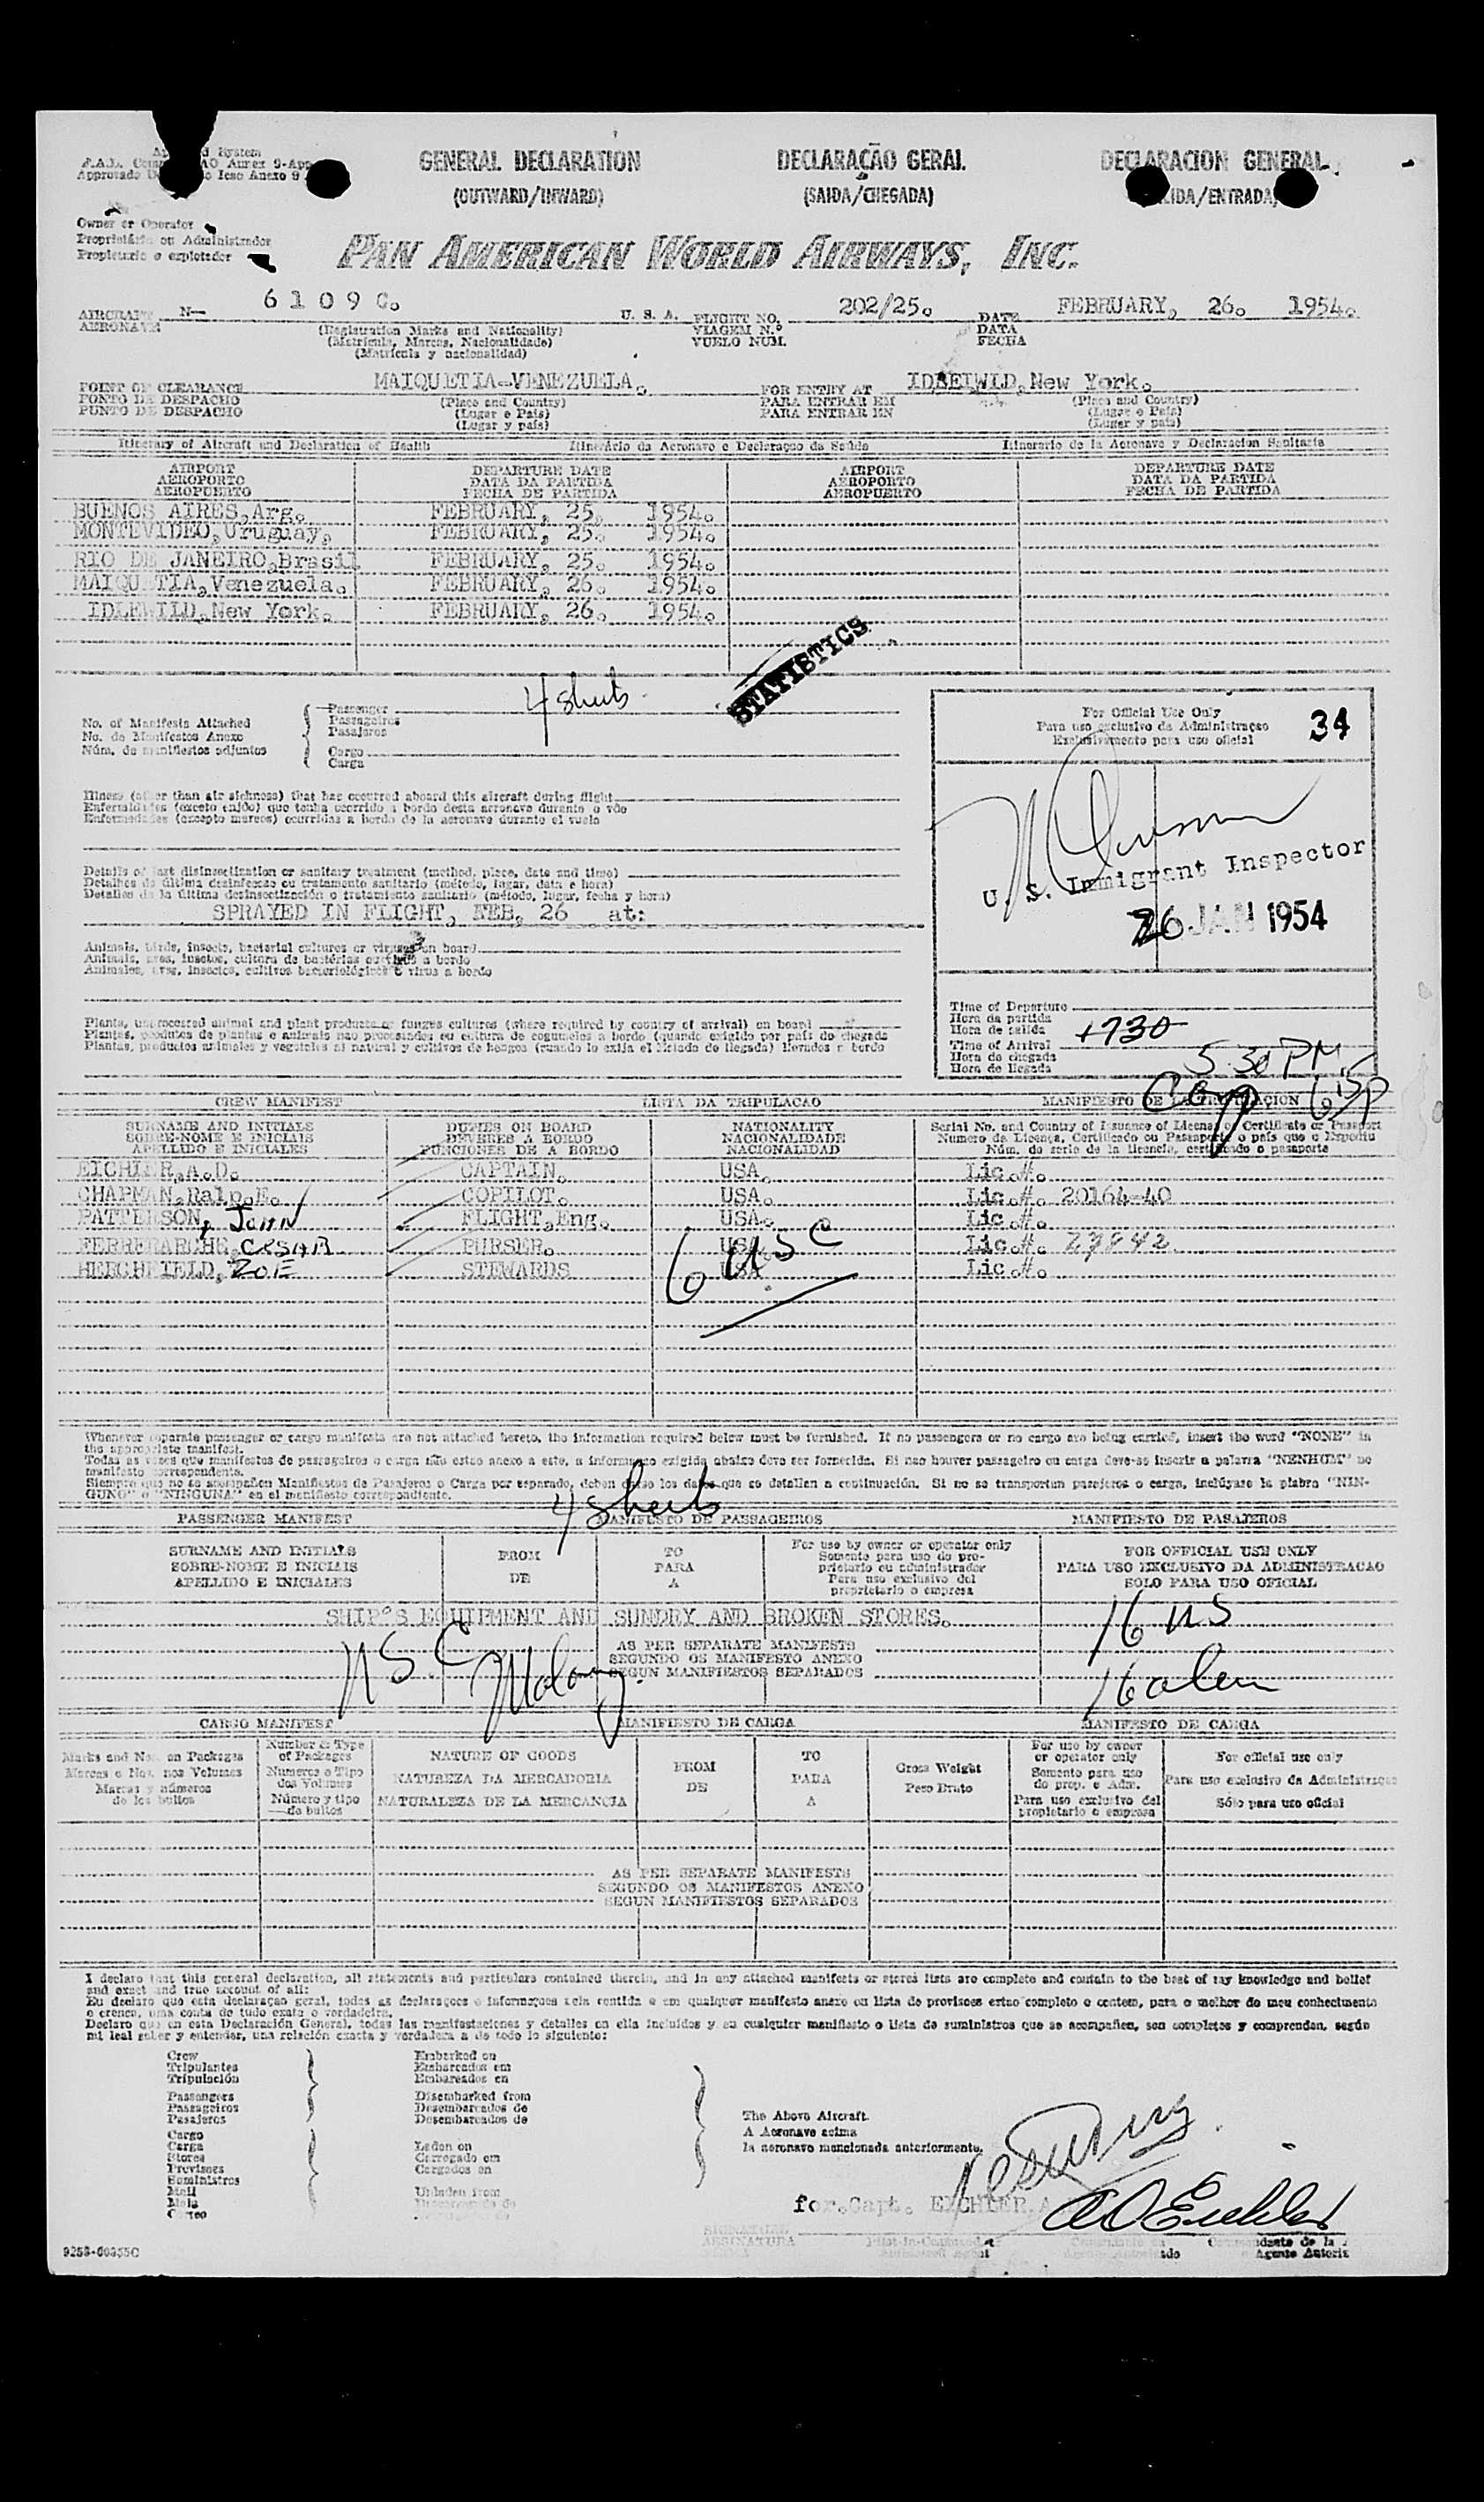 GENERAL DECLARATION
(OUTWARD/INWARD)
DECLARAÇÃO GERAL
(SAIDA/CHEGADA)
DECLARACION GENERAL
Owner or Operator
Proprietário ou Administrador
Propietario o explotador
PAN AMERICAN WORLD AIRWAYS, INC.
AIRCRAFT N— 6109C. U. S. A. FLIGHT NO. 202/25. DATE FEBRUARY, 26. 1954.
AERONAVE (Registration Marks and Nationality) VIAGEM N.º DATA
(Matricula, Marcas, Nacionalidade) VUELO NUM. FECHA
(Matricula y nacionalidad)
POINT OF CLEARANCE MAIQUETIA-VENEZUELA. FOR ENTRY AT New York.
PONTO DE DESPACHO (Place and Country) PARA ENTRAR EM (Place and Country)
PUNTO DE DESPACHO (Lugar e País) PARA ENTRAR EN (Lugar e País)
(Lugar y país) (Lugar y país)
Itinerary of Aircraft and Declaration of Health Itinerário da Aeronave e Declaraçao da Saúde Itinerario de la Aeronave y Declaracion Sanitaria
AIRPORT DEPARTURE DATE AIRPORT DEPARTURE DATE
AEROPORTO DATA DA PARTIDA AEROPORTO DATA DA PARTIDA
AEROPUERTO FECHA DE PARTIDA AEROPUERTO FECHA DE PARTIDA
BUENOS AIRES,Arg. FEBRUARY, 25. 1954.
MONTEVIDEO,Uruguay, FEBRUARY, 25. 1954.
RIO DE JANEIRO,Brasil FEBRUARY, 25. 1954.
MAIQUETIA,Venezuela. FEBRUARY, 26. 1954.
IDLEWILD,New York. FEBRUARY, 26. 1954.
STATISTICS
4 sheets
No. of Manifests Attached
No. de Manifestos Anexo
Núm. de manifiestos adjuntos
Passenger
Passageiros
Pasajeros
Cargo
Carga
For Official Use Only
Para uso exclusivo da Administraçao
Exclusivamento para uso oficial
34
U. S. Immigrant Inspector
26 JAN 1954
Illness (other than air sickness) that has occurred aboard this aircraft during flight
Enfermidades (exceto enjôo) que tenha ocorrido a bordo desta aeronave durante o vôo
Enfermedades (excepto mareos) ocurridas a bordo de la aeronave durante el vuelo
Details of last disinsectization or sanitary treatment (method, place, date and time)
Detalhes da última desinfecção ou tratamento sanitario (método, lugar, data e hora)
Detalles de la última desinsectización o tratamiento sanitario (método, lugar, fecha y hora)
SPRAYED IN FLIGHT, FEB, 26 at:
Animals, birds, insects, bacterial cultures or viruses on board
Animais, aves, insetos, cultura de bactérias ou virus a bordo
Animales, aves, insectos, cultivos bacteriológicos o virus a bordo
Plants, unprocessed animal and plant products or fungus cultures (where required by country of arrival) on board
Plantas, produtos de plantas e animais nao processados ou cultura de cogumelos a bordo (quando exigido por país de chegada
Plantas, productos animales y vegetales al natural y cultivos de hongos (cuando lo exija el Estado de llegada) llevados a bordo
Time of Departure
Hora da partida
Hora de salida
Time of Arrival
Hora de chegada
Hora de llegada
+730
5 30 PM
CREW MANIFEST LISTA DA TRIPULACAO
SURNAME AND INITIALS DUTIES ON BOARD NATIONALITY Serial No. and Country of Issuance of License or Certificate or Passport
SOBRE-NOME E INICIAIS DEVERES A BORDO NACIONALIDADE Numero da Licença, Certificado ou Passaporte o país que o Expediu
APELLIDO E INICIALES FUNCIONES DE A BORDO NACIONALIDAD Núm. de serie de la licencia, certificado o pasaporte
EICHLER,A.D. CAPTAIN. USA. Lic.#.
CHAPMAN,Ralp.E. COPILOT. USA. Lic.#. 20164-40
PATTERSON, JOHN FLIGHT,Eng. USA. Lic.#.
CESAR PURSER. USA. Lic.#.
ZOE STEWARDS USA Lic.#.
6 USC
Whenever separate passenger or cargo manifests are not attached hereto, the information required below must be furnished. If no passengers or no cargo are being carried, insert the word "NONE" in
the appropriate manifest.
Todas as vezes que manifestos de passageiros o carga não estao anexo a este, a informaçao exigida abaixo deve ser fornecida. Si nao houver passageiro ou carga deve-se inserir a palavra "NENHUM" no
manifesto correspondente.
Siempre que no se acompañen Manifiestos de Pasajeros o Carga por separado, deben darse los datos que se detallan a continuación. Si no se transportan pasajeros o carga, inclúyase la plabra "NIN-
GUNO" o "NINGUNA" en el manifiesto correspondiente.
4 sheets
PASSENGER MANIFEST MANIFESTO DE PASSAGEIROS MANIFIESTO DE PASAJEROS
SURNAME AND INITIALS FROM TO For use by owner or operator only FOR OFFICIAL USE ONLY
SOBRE-NOME E INICIAIS DE PARA Somente para uso do pro- PARA USO EXCLUSIVO DA ADMINISTRACAO
APELLIDO E INICIALES A prietario ou administrador SOLO PARA USO OFICIAL
Para uso exclusivo del
propietario o empresa
SHIP'S EQUIPMENT AND SUNDRY AND BROKEN STORES.
16 US
16 alien
AS PER SEPARATE MANIFESTS
SEGUNDO OS MANIFESTO ANEXO
SEGUN MANIFIESTOS SEPARADOS
CARGO MANIFEST MANIFIESTO DE CARGA MANIFESTO DE CARGA
Marks and Nos. on Packages Number & Type of Packages NATURE OF GOODS FROM TO Gross Weight For use by owner or operator only For official use only
Marcas e Nos. nos Volumes Numeros e Tipo dos Volumes NATUREZA DA MERCADORIA DE PARA Peso Bruto Somente para uso do prop. e Adm. Para uso exclusivo da Administraçao
Marcas y números de los bultos Número y tipo de bultos NATURALEZA DE LA MERCANCIA A Para uso exclusivo del propietario o empresa Sólo para uso oficial
AS PER SEPARATE MANIFESTS
SEGUNDO OS MANIFESTOS ANEXO
SEGUN MANIFIESTOS SEPARADOS
I declare that this general declaration, all statements and particulars contained therein, and in any attached manifests or stores lists are complete and contain to the best of my knowledge and belief
and exact and true account of all:
Declaro que en esta Declaración General, todas las manifestaciones y detalles en ella incluidos y en cualquier manifiesto o lista de suministros que se acompañen, son completos y comprenden, según
mi leal saber y entender, una relación exacta y verdadera a de todo lo siguiente:
Crew
Tripulantes
Tripulación
Passengers
Passageiros
Pasajeros
Cargo
Carga
Stores
Provisoes
Suministros
Mail
Mala
Correo
Embarked on
Embarcados em
Embarcados en
Disembarked from
Desembarcados de
Desembarcados de
Laden on
Carregado em
Cargados en
Unladen from
The Above Aircraft.
A Aeronave acima
la aeronave mencionada anteriormente.
for.Capt. EICHLER.A
A D Eichler